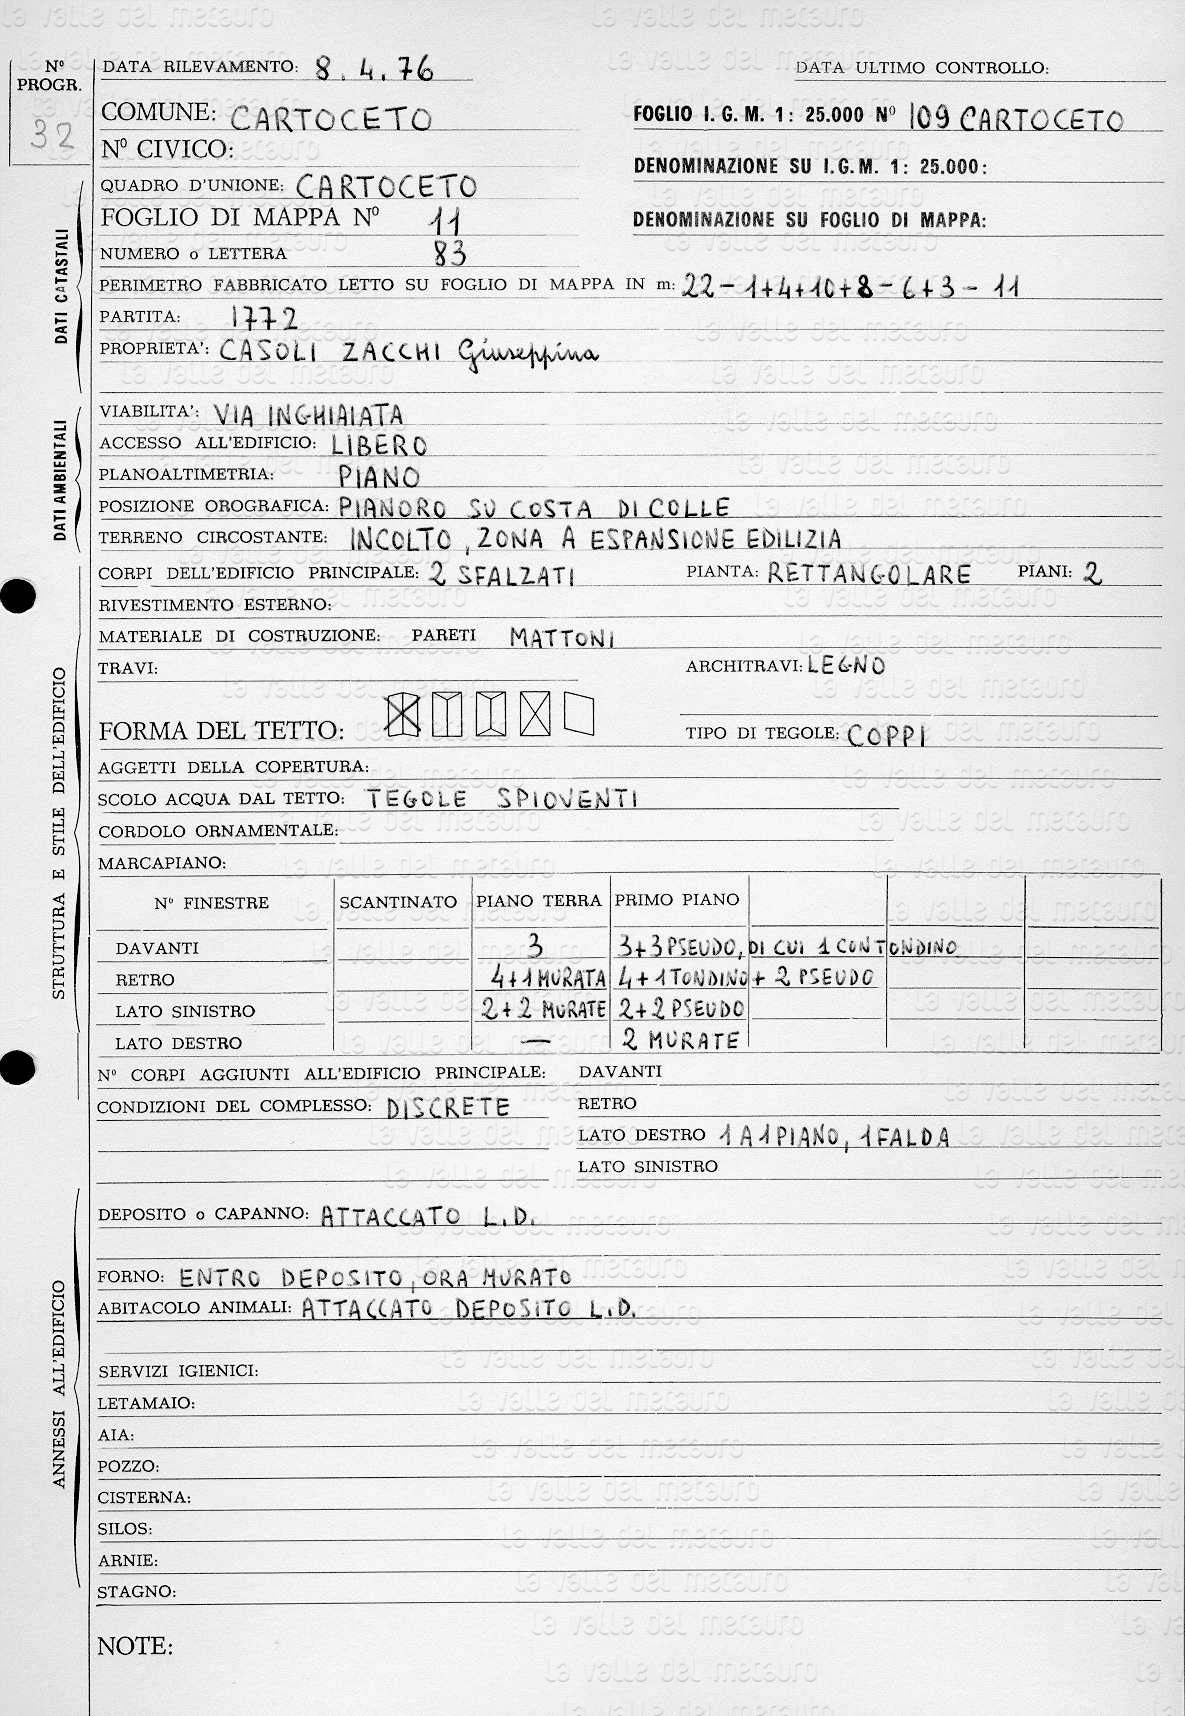 Nº PROGR.
32
DATA RILEVAMENTO: 8.4.76
DATA ULTIMO CONTROLLO:
COMUNE: CARTOCETO
FOGLIO I.G.M. 1: 25.000 Nº 109 CARTOCETO
Nº CIVICO:
DENOMINAZIONE SU I.G.M. 1: 25.000:
QUADRO D'UNIONE: CARTOCETO
FOGLIO DI MAPPA Nº 11
DENOMINAZIONE SU FOGLIO DI MAPPA:
NUMERO o LETTERA 83
PERIMETRO FABBRICATO LETTO SU FOGLIO DI MAPPA IN m: 22-1+4+10+8-6+3-11
PARTITA: 1772
PROPRIETA': CASOLI ZACCHI Giuseppina
DATI CATASTALI
VIABILITA': VIA INGHIAIATA
ACCESSO ALL'EDIFICIO: LIBERO
PLANOALTIMETRIA: PIANO
POSIZIONE OROGRAFICA: PIANORO SU COSTA DI COLLE
TERRENO CIRCOSTANTE: INCOLTO, ZONA A ESPANSIONE EDILIZIA
DATI AMBIENTALI
CORPI DELL'EDIFICIO PRINCIPALE: 2 SFALZATI PIANTA: RETTANGOLARE PIANI: 2
RIVESTIMENTO ESTERNO:
MATERIALE DI COSTRUZIONE: PARETI MATTONI
TRAVI:
ARCHITRAVI: LEGNO
FORMA DEL TETTO:
TIPO DI TEGOLE: COPPI
AGGETTI DELLA COPERTURA:
SCOLO ACQUA DAL TETTO: TEGOLE SPIOVENTI
CORDOLO ORNAMENTALE:
MARCAPIANO:
Nº FINESTRE SCANTINATO PIANO TERRA PRIMO PIANO
DAVANTI 3 3+3 PSEUDO, DI CUI 1 CON TONDINO
RETRO 4+1 MURATA 4+1 TONDINO + 2 PSEUDO
LATO SINISTRO 2+2 MURATE 2+2 PSEUDO
LATO DESTRO — 2 MURATE
Nº CORPI AGGIUNTI ALL'EDIFICIO PRINCIPALE: DAVANTI
CONDIZIONI DEL COMPLESSO: DISCRETE
RETRO
LATO DESTRO 1 A 1 PIANO, 1 FALDA
LATO SINISTRO
STRUTTURA E STILE DELL'EDIFICIO
DEPOSITO o CAPANNO: ATTACCATO L.D.
FORNO: ENTRO DEPOSITO, ORA MURATO
ABITACOLO ANIMALI: ATTACCATO DEPOSITO L.D.
SERVIZI IGIENICI:
LETAMAIO:
AIA:
POZZO:
CISTERNA:
SILOS:
ARNIE:
STAGNO:
ANNESSI ALL'EDIFICIO
NOTE:
la valle del metauro